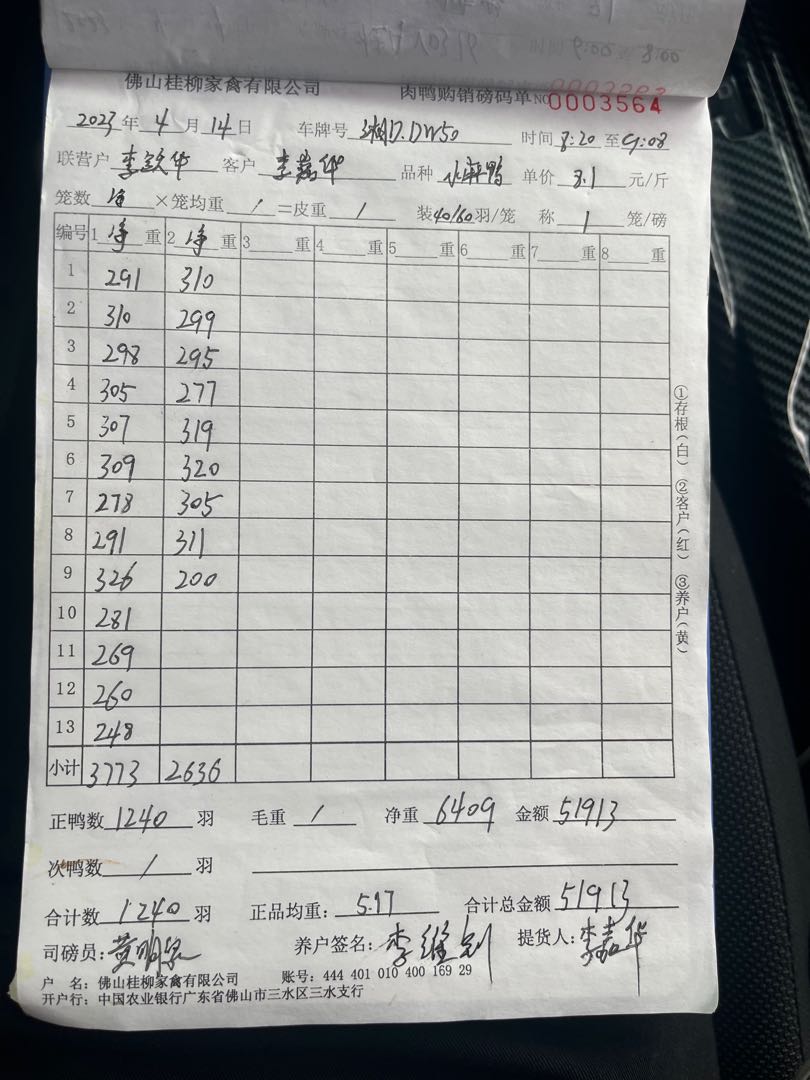 佛山桂柳家禽有限公司 肉鸭购销磅码单 NO 0003564
2023年 4 月 14 日 车牌号 D.DW50 时间 8:20 至 9:08
联营户 李 华 客户 李嘉华 品种 水鸭 单价 8.1 元/斤
笼数 净 ×笼均重 / =皮重 / 装 40/60 羽/笼 称 1 笼/磅
编号 1 净 重 2 净 重 3 重 4 重 5 重 6 重 7 重 8 重
1 291 310
2 310 299
3 298 295
4 305 277
5 307 319
6 309 320
7 278 305
8 291 311
9 326 200
10 281
11 269
12 260
13 248
小计 3773 2636
正鸭数 1240 羽 毛重 / 净重 6409 金额 51913
次鸭数 / 羽
合计数 1240 羽 正品均重: 5.17 合计总金额 51913
司磅员: 黄明 养户签名: 李维 提货人: 李嘉华
户 名: 佛山桂柳家禽有限公司 账号: 444 401 010 400 169 29
开户行: 中国农业银行广东省佛山市三水区三水支行
①存根(白) ②客户(红) ③养户(黄)